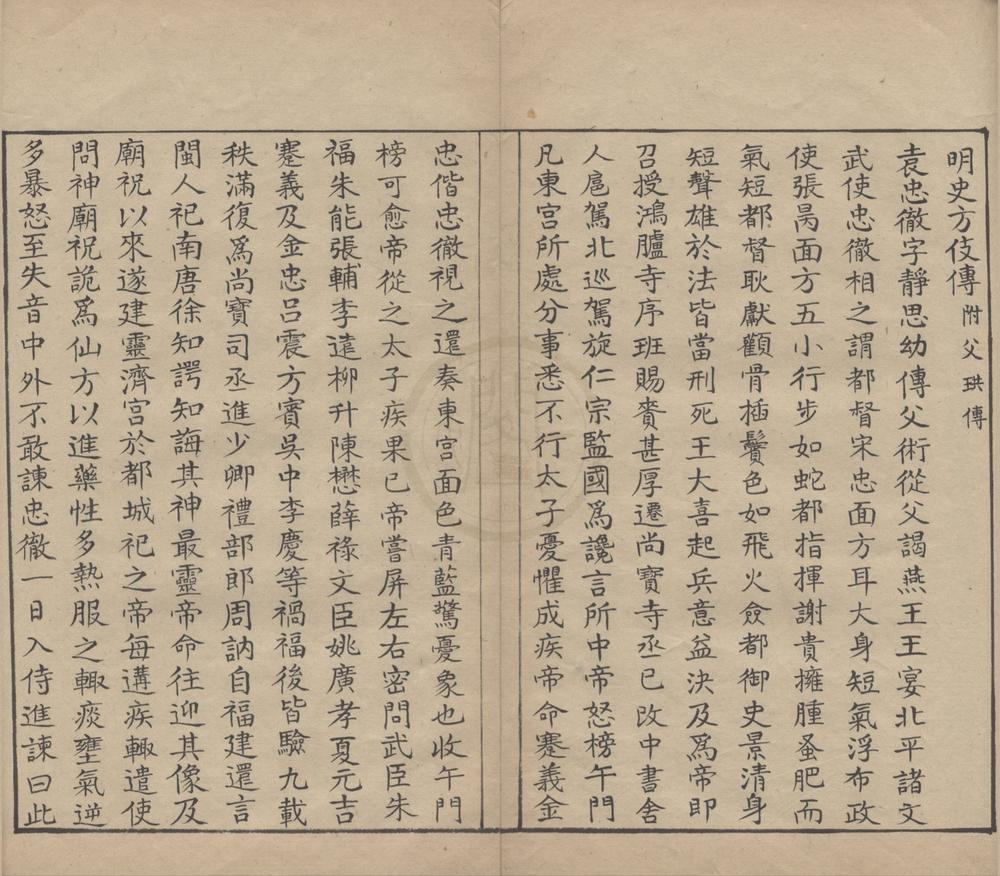 明史方伎傳附父珙傳
袁忠徹字靜思幼傳父術從父謁燕王王宴北平諸文
武使忠徹相之謂都督宋忠面方耳大身短氣浮布政
使張昺面方五小行步如蛇都指揮謝貴擁腫蚤肥而
氣短都督耿獻顴骨插鬢色如飛火僉都御史景清身
短聲雄於法皆當刑死王大喜起兵意益決及爲帝即
召授鴻臚寺序班賜賚甚厚遷尚寶寺丞已改中書舍
人扈駕北巡駕旋仁宗監國爲讒言所中帝怒榜午門
凡東宮所處分事悉不行太子憂懼成疾帝命蹇義金
忠偕忠徹視之還奏東宮面色青藍驚憂象也收午門
榜可愈帝從之太子疾果已帝嘗屏左右密問武臣朱
福朱能張輔李遠柳升陳懋薛祿文臣姚廣孝夏元吉
蹇義及金忠呂震方賓吳中李慶等禍福後皆驗九載
秩滿復爲尚寶司丞進少卿禮部郎周訥自福建還言
閩人祀南唐徐知諤知誨其神最靈帝命往迎其像及
廟祝以來遂建靈濟宮於都城祀之帝每遘疾輙遣使
問神廟祝詭爲仙方以進藥性多熱服之輙痰壅氣逆
多暴怒至失音中外不敢諫忠徹一日入侍進諫曰此